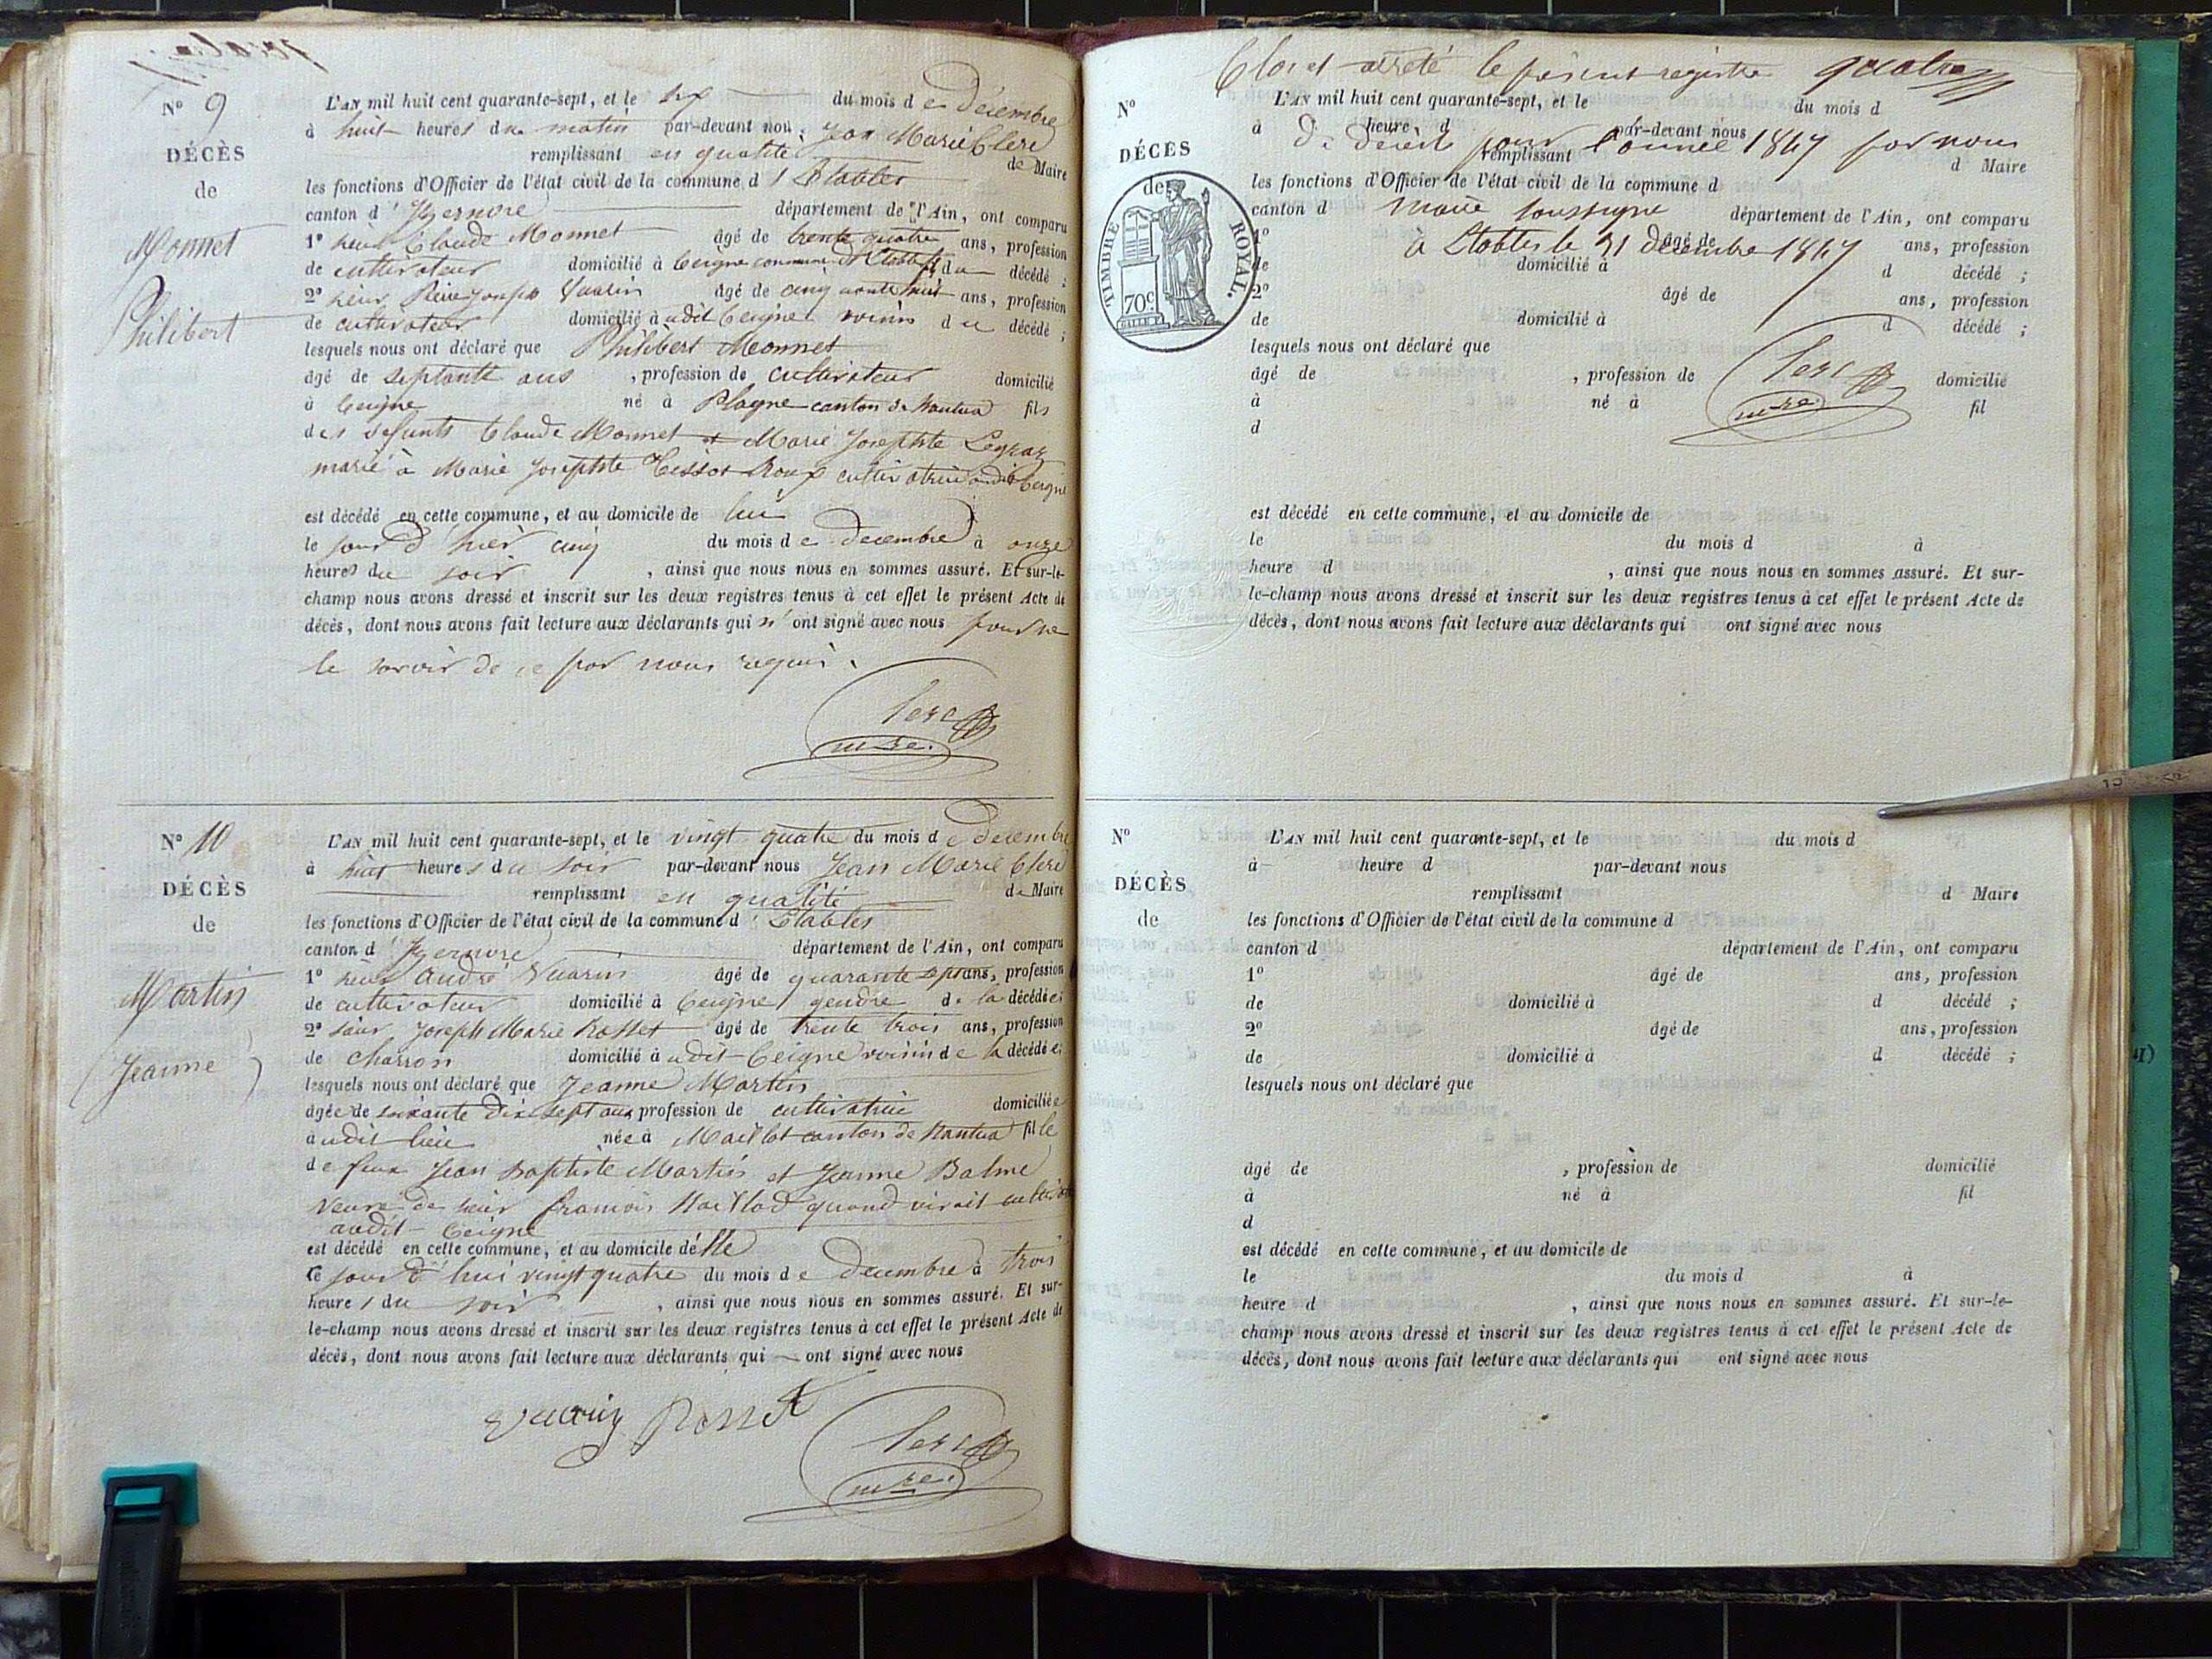 N° 9
DÉCÈS
de
Monnet
Philibert
L'AN mil huit cent quarante-sept, et le six du mois de Décembre
à huit heures du matin par-devant nous Jean Marie Clerc
remplissant en qualité de Maire
les fonctions d'Officier de l'état civil de la commune d'Etables
canton d'Izernore département de l'Ain, ont comparu
1° sieur Claude Monnet âgé de trente quatre ans, profession
de cultivateur domicilié à Ceigne commune d'Etables du décédé ;
2° sieur Reine Joseph Vuarin âgé de cinquante huit ans, profession
de cultivateur domicilié audit Ceigne voisin du décédé ;
lesquels nous ont déclaré que Philibert Monnet
âgé de septante ans , profession de cultivateur domicilié
à Ceigne né à Plagne canton de Nantua fils
des défunts Claude Monnet et Marie Josephte Legraz
marié à Marie Josephte Tissot Roux cultivatrice audit Ceigne
est décédé en cette commune, et au domicile de lui
le jour d'hier cinq du mois de décembre à onze
heures du soir , ainsi que nous nous en sommes assuré. Et sur-le-
champ nous avons dressé et inscrit sur les deux registres tenus à cet effet le présent Acte de
décès, dont nous avons fait lecture aux déclarants qui n'ont signé avec nous pour ne
le savoir de ce par nous requis.
Clerc
mre.
N° 10
DÉCÈS
de
Martin
Jeanne
L'AN mil huit cent quarante-sept, et le vingt quatre du mois de décembre
à huit heures du soir par-devant nous Jean Marie Clerc
remplissant en qualité de Maire
les fonctions d'Officier de l'état civil de la commune d'Etables
canton d'Izernore département de l'Ain, ont comparu
1° sieur André Vuarin âgé de quarante sept ans, profession
de cultivateur domicilié à Ceigne gendre de la décédée;
2° sieur Joseph Marie Rosset âgé de trente trois ans, profession
de charron domicilié audit Ceigne voisin de la décédée;
lesquels nous ont déclaré que Jeanne Martin
âgée de soixante dix sept ans profession de cultivatrice domiciliée
audit lieu née à Maillat canton de Nantua fille
de feux Jean Baptiste Martin et Jeanne Balme
veuve de sieur François quand vivait cultivateur
audit Ceigne
est décédé en cette commune, et au domicile d'elle
ce jour d'hui vingt quatre du mois de décembre à trois
heures du soir , ainsi que nous nous en sommes assuré. Et sur-
le-champ nous avons dressé et inscrit sur les deux registres tenus à cet effet le présent Acte de
décès, dont nous avons fait lecture aux déclarants qui ont signé avec nous
Vuarin Rosset
Clerc
mre.
Clos et arrêté le présent registre quatre
N°
DÉCÈS
de
TIMBRE ROYAL.
70c
L'AN mil huit cent quarante-sept, et le du mois d
à heure d par-devant nous
De décès pour l'année 1847 par nous
remplissant d Maire
les fonctions d'Officier de l'état civil de la commune d
canton d département de l'Ain, ont comparu
maire soussigné
1° âgé de ans, profession
à Etables le 31 décembre 1847
de domicilié à d décédé ;
2° âgé de ans, profession
de domicilié à d décédé ;
lesquels nous ont déclaré que
âgé de , profession de domicilié
à né à fil
d
Clerc
mre.
est décédé en cette commune, et au domicile de
le du mois d à
heure d , ainsi que nous nous en sommes assuré. Et sur-
le-champ nous avons dressé et inscrit sur les deux registres tenus à cet effet le présent Acte de
décès, dont nous avons fait lecture aux déclarants qui ont signé avec nous
N°
DÉCÈS
de
L'AN mil huit cent quarante-sept, et le du mois d
à heure d par-devant nous
remplissant d Maire
les fonctions d'Officier de l'état civil de la commune d
canton d département de l'Ain, ont comparu
1° âgé de ans, profession
de domicilié à d décédé ;
2° âgé de ans, profession
de domicilié à d décédé ;
lesquels nous ont déclaré que
âgé de , profession de domicilié
à né à fil
d
est décédé en cette commune, et au domicile de
le du mois d à
heure d , ainsi que nous nous en sommes assuré. Et sur-le-
champ nous avons dressé et inscrit sur les deux registres tenus à cet effet le présent Acte de
décès, dont nous avons fait lecture aux déclarants qui ont signé avec nous